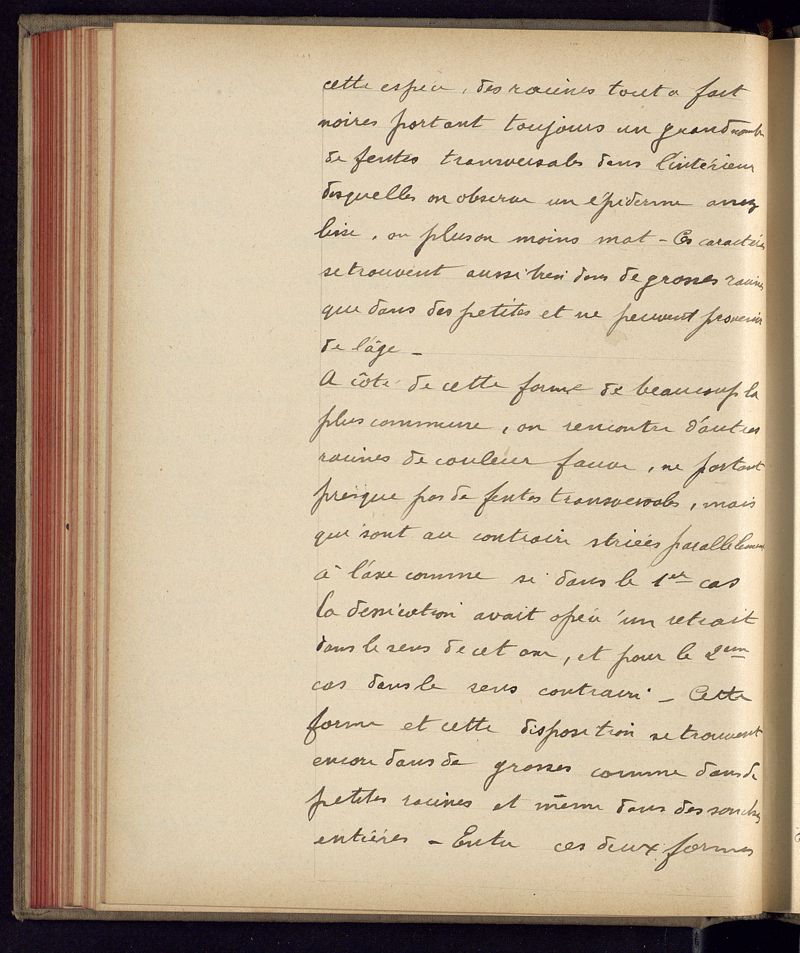 cette espèce, des racines tout a fait
noires portant toujours un grand nombre
de fentes transversales dans l'intérieur
desquelles on observe un épiderme assez
lisse, ou plus ou moins mat - Ces caractères
se trouvent aussi bien dans de grosses racines
que dans des petites et ne peuvent provenir
de l'âge -
A côté de cette forme de beaucoup la
plus commune, on rencontre d'autres
racines de couleur fauve, ne portant
presque pas de fentes transversales, mais
qui sont au contraire striées parallèlement
à l'axe comme si dans le 1er cas
la dessication avait opéré un retrait
dans le sens de cet axe, et pour le 2em
cas dans le sens contraire - Cette
forme et cette disposition se trouvent
encore dans de grosses comme dans de
petites racines et même dans des souches
entières - Entre ces deux formes